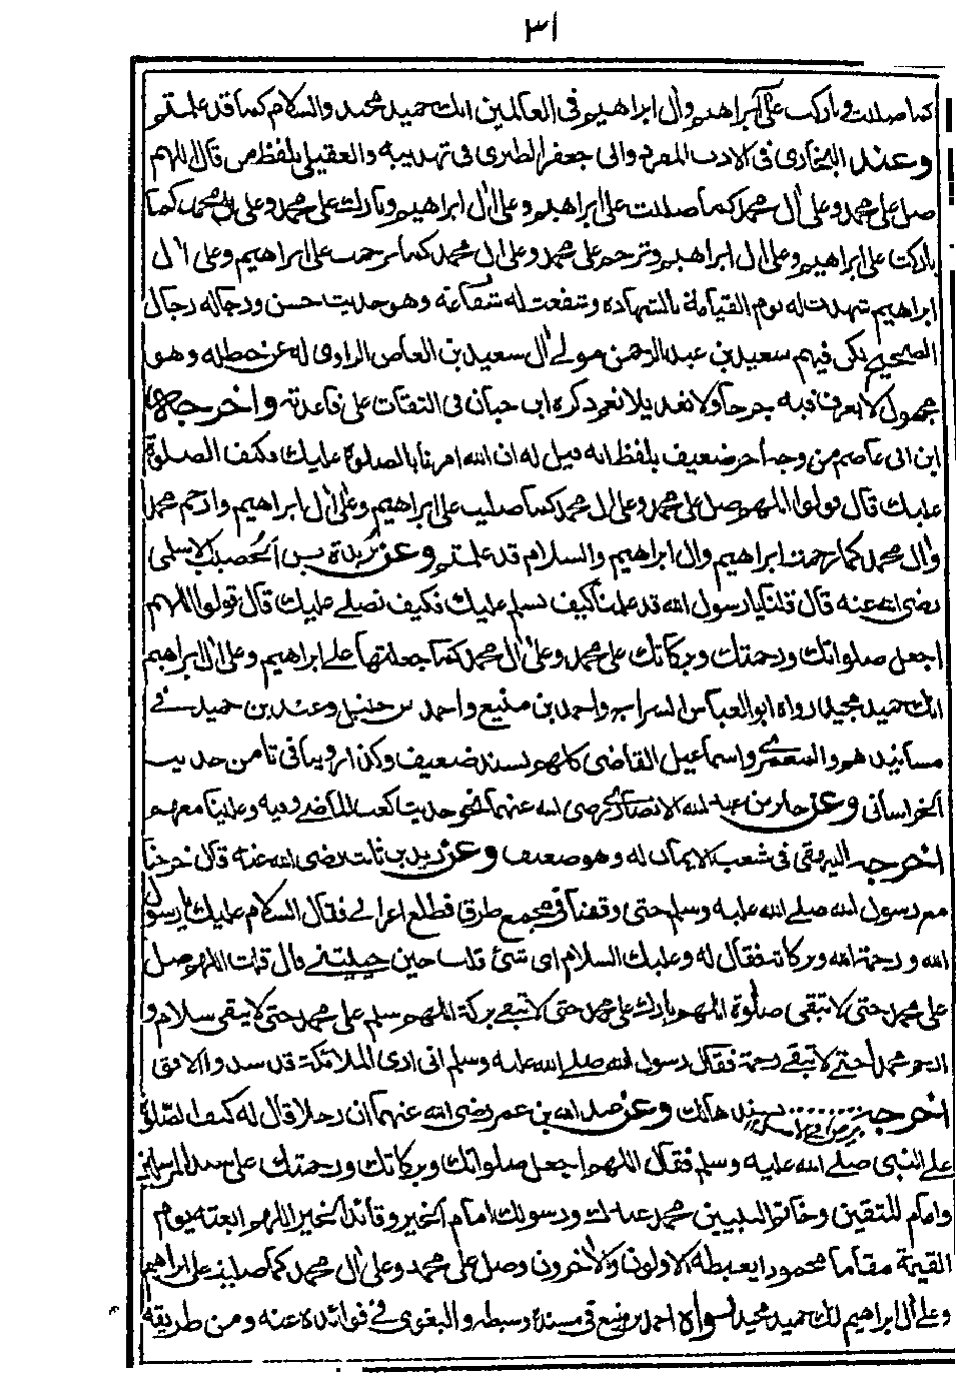 ٣١
كما صليت وباركت على ابراهيم وآل ابراهيم فى العالمين انك حميد مجيد والسلام كما قد علمتم
وعند البخارى فى الادب المفرد وابى جعفر الطبرى فى تهذيبه والعقيلى بلفظ من قال اللهم
صل على محمد وعلى آل محمد كما صليت على ابراهيم وعلى آل ابراهيم وبارك على محمد وعلى آل محمد كما
باركت على ابراهيم وعلى آل ابراهيم وترحم على محمد وعلى آل محمد كما ترحمت على ابراهيم وعلى آل
ابراهيم شهدت له يوم القيامة بالشهادة وشفعت له شفاعة وهو حديث حسن ورجاله رجال
الصحيح لكن فيهم سعيد بن عبد الرحمن مولى آل سعيد بن العاص الراوى له عن حنظلة وهو
مجهول لا نعرف فيه جرحا ولا تعديلا نعم ذكره ابن حبان فى الثقات على قاعدته واخرجه
ابن ابى عاصم من وجه آخر ضعيف بلفظ انه قيل له ان الله امرنا بالصلوة عليك فكيف الصلوة
عليك قال قولوا اللهم صل على محمد وعلى آل محمد كما صليت على ابراهيم وعلى آل ابراهيم وارحم محمدا
وآل محمد كما رحمت ابراهيم وآل ابراهيم والسلام قد علمتم وعن بريدة بن الحصيب الاسلمى
رضى الله عنه قال قلنا يا رسول الله قد علمنا كيف نسلم عليك فكيف نصلى عليك قال قولوا اللهم
اجعل صلواتك ورحمتك وبركاتك على محمد وعلى آل محمد كما جعلتها على ابراهيم وعلى آل ابراهيم
انك حميد مجيد رواه ابو العباس السراج واحمد بن منيع واحمد بن حنبل وعبد بن حميد فى
مسانيدهم والمعمرى واسماعيل القاضى كلهم بسند ضعيف وكذا روينا فى ثامن حديث
الخراسانى وعن جابر بن عبد الله الانصارى رضى الله عنهما نحو حديث كعب الماضى وفيه وعلينا معهم
اخرجه البيهقى فى شعب الايمان له وهو ضعيف وعن زيد بن ثابت رضى الله عنه قال خرجنا
مع رسول الله صلى الله عليه وسلم حتى وقفنا فى مجمع طرق فطلع اعرابى فقال السلام عليك يا رسول
الله ورحمة الله وبركاته فقال له وعليك السلام اى شئ قلت حين حييتنى قال قلت اللهم صل
على محمد حتى لا تبقى صلوة اللهم بارك على محمد حتى لا تبقى بركة اللهم سلم على محمد حتى لا يبقى سلام و
ارحم محمدا حتى لا تبقى رحمة فقال رسول الله صلى الله عليه وسلم انى ارى الملائكة قد سدوا الافق
اخرجه ........ بسند هالك وعن عبد الله بن عمر رضى الله عنهما ان رجلا قال له كيف الصلوة
على النبى صلى الله عليه وسلم فقال اللهم اجعل صلواتك وبركاتك ورحمتك على سيد المرسلين
وامام المتقين وخاتم النبيين محمد عبدك ورسولك امام الخير وقائد الخير اللهم ابعثه يوم
القيمة مقاما محمودا يغبطه الاولون والآخرون وصل على محمد وعلى آل محمد كما صليت على ابراهيم
وعلى آل ابراهيم انك حميد مجيد رواه احمد بن منيع فى مسنده وسبطه والبغوى فى فوائده عنه ومن طريقه